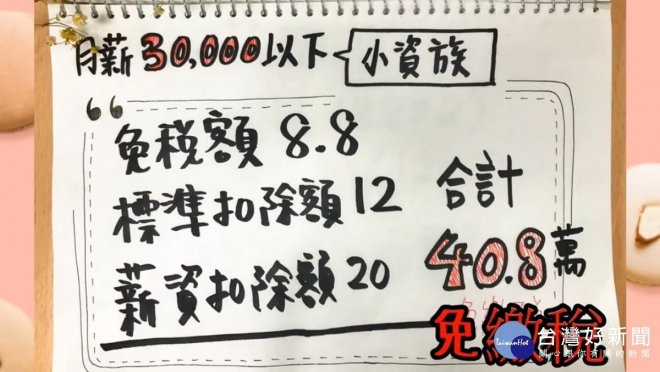 月薪30,000以下 小資族
免稅額 8.8
標準扣除額 12
薪資扣除額 20
合計
40.8萬
免繳稅
台灣好新聞
TaiwanHot
關心與你有關的新聞